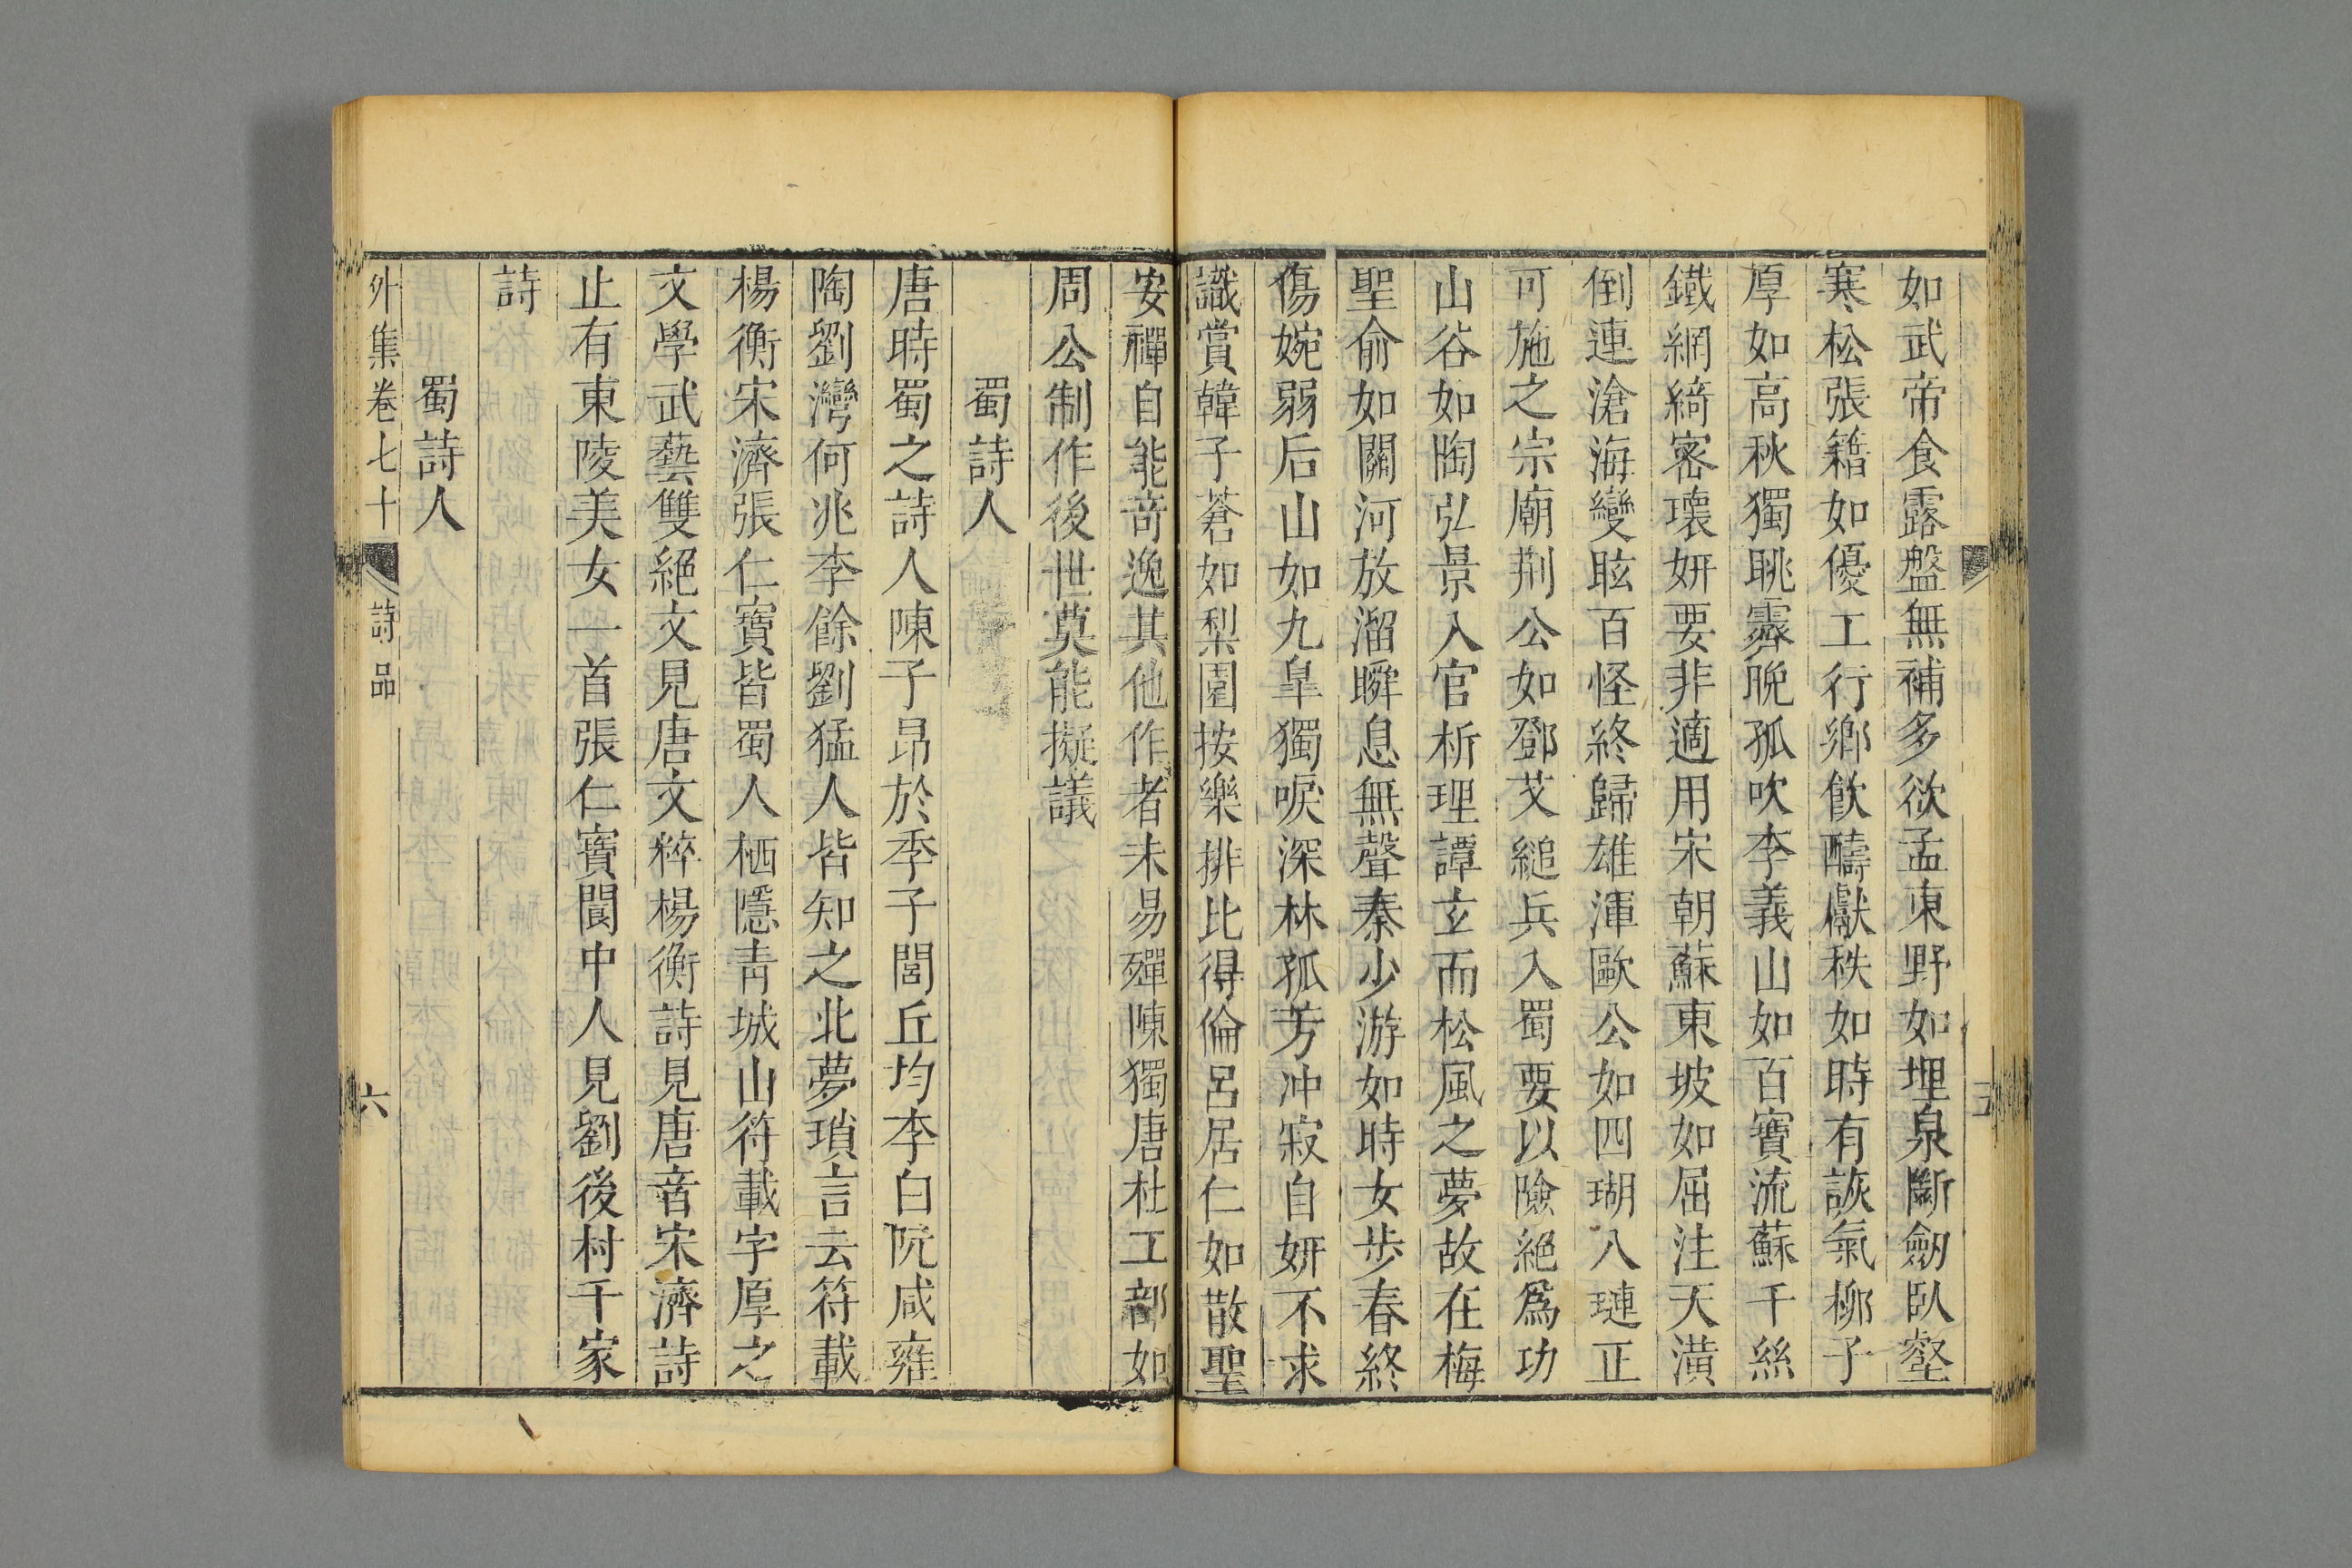 如武帝食露盤無補多欲孟東野如埋泉斷劒臥壑
寒松張籍如優工行鄉飲醻獻秩如時有詼氣柳子
厚如高秋獨眺霽晚孤吹李義山如百寶流蘇千絲
鐵網綺密瓌妍要非適用宋朝蘇東坡如屈注天潢
倒連滄海變眩百怪終歸雄渾歐公如四瑚八璉正
可施之宗廟荆公如鄧艾縋兵入蜀要以險絕爲功
山谷如陶弘景入官析理譚玄而松風之夢故在梅
聖俞如關河放溜瞬息無聲秦少游如時女步春終
傷婉弱后山如九皐獨唳深林孤芳冲寂自妍不求
識賞韓子蒼如梨園按樂排比得倫呂居仁如散聖
安禪自能竒逸其他作者未易殫陳獨唐杜工部如
周公制作後世莫能擬議
蜀詩人
唐時蜀之詩人陳子昂於季子閭丘均李白阮咸雍
陶劉灣何兆李餘劉猛人皆知之北夢瑣言云符載
楊衡宋濟張仁寶皆蜀人栖隱青城山符載字厚之
文學武藝雙絕文見唐文粹楊衡詩見唐音宋濟詩
止有東陵美女一首張仁寶閬中人見劉後村千家
詩
蜀詩人
外集卷七十 詩品 六